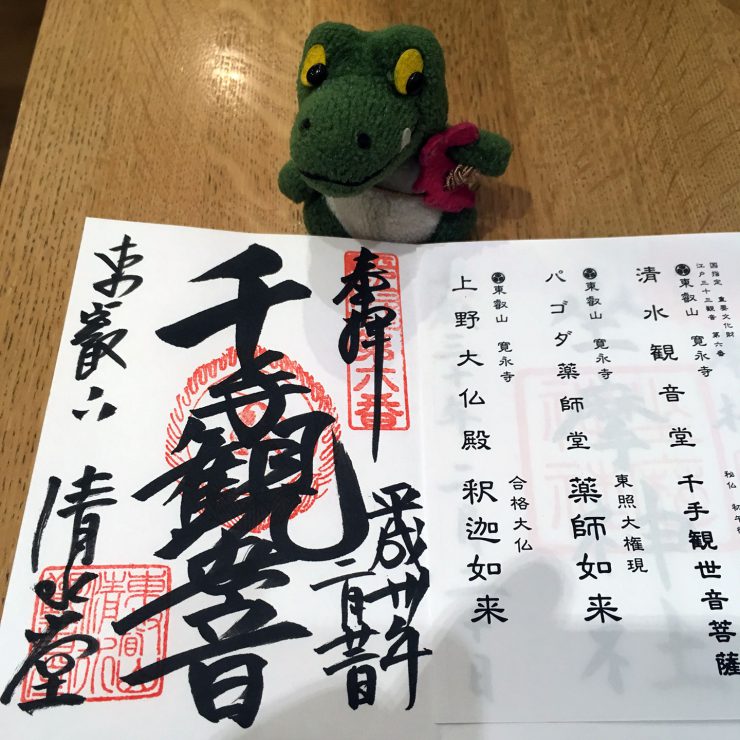 国指定 重要文化財
江戸三十三観音 第六番
東叡山 寛永寺
清水観音堂 千手観世音菩薩
秘仏
東叡山 寛永寺
パゴダ薬師堂 薬師如来
東照大権現
東叡山 寛永寺
上野大仏殿 釈迦如来
合格大仏
奉拝
第六番
平成卅年
二月
千手観音
東叡山 清水堂